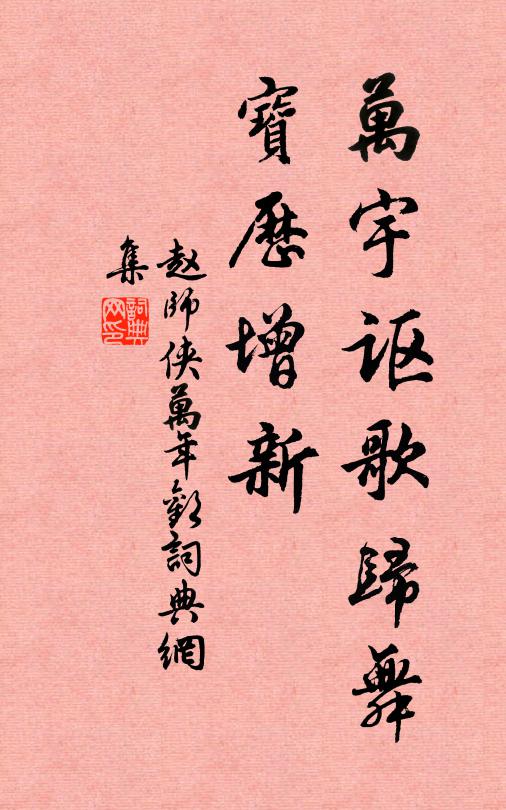 萬宇謳歌歸舞
寶歷增新
赵師侠萬年歡詞典網
集
詞典网印